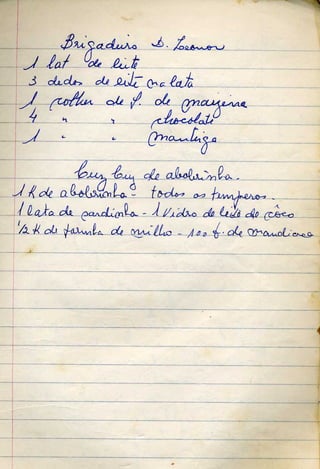 Brigadeiro D. Leonor
1 lat de leite
3 dedos de leite na lata
1 colher de s. de mayzena
4 " " chocolate
1 " " manteiga
Cuz Cuz de abobrinha.
1 K de abobrinha - todos os temperos.
1 lata de sardinha - 1 vidro de leite de côco
1/2 K de farinha de milho - 100 g. de mandioca